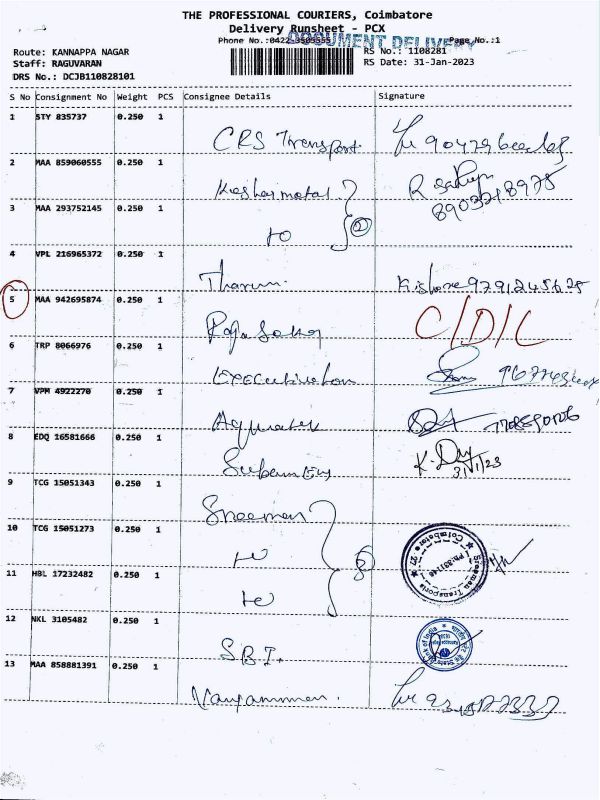 THE PROFESSIONAL COURIERS, Coimbatore
Delivery Runsheet - PCX
Phone No.:0422-3505555 Page No.:1
DOCUMENT DELIVERY
Route: KANNAPPA NAGAR RS No.: 1108281
Staff: RAGUVARAN RS Date: 31-Jan-2023
DRS No.: DCJB110828101
S No Consignment No Weight PCS Consignee Details Signature
1 STY 835737 0.250 1
CRS Transport
2 MAA 859060555 0.250 1
3 MAA 293752145 0.250 1
8903218975
4 VPL 216965372 0.250 1
Tharun Kishore 9791245625
5 MAA 942695874 0.250 1
C/D/C
6 TRP 8066976 0.250 1
7 VPM 4922270 0.250 1
8 EDQ 16581666 0.250 1
K. 31/1/23
9 TCG 15051343 0.250 1
Sreeman
10 TCG 15051273 0.250 1
Sreeman Transports Coimbatore
11 HBL 17232482 0.250 1
12 NKL 3105482 0.250 1
S.B.I. State Bank of India
13 MAA 858881391 0.250 1